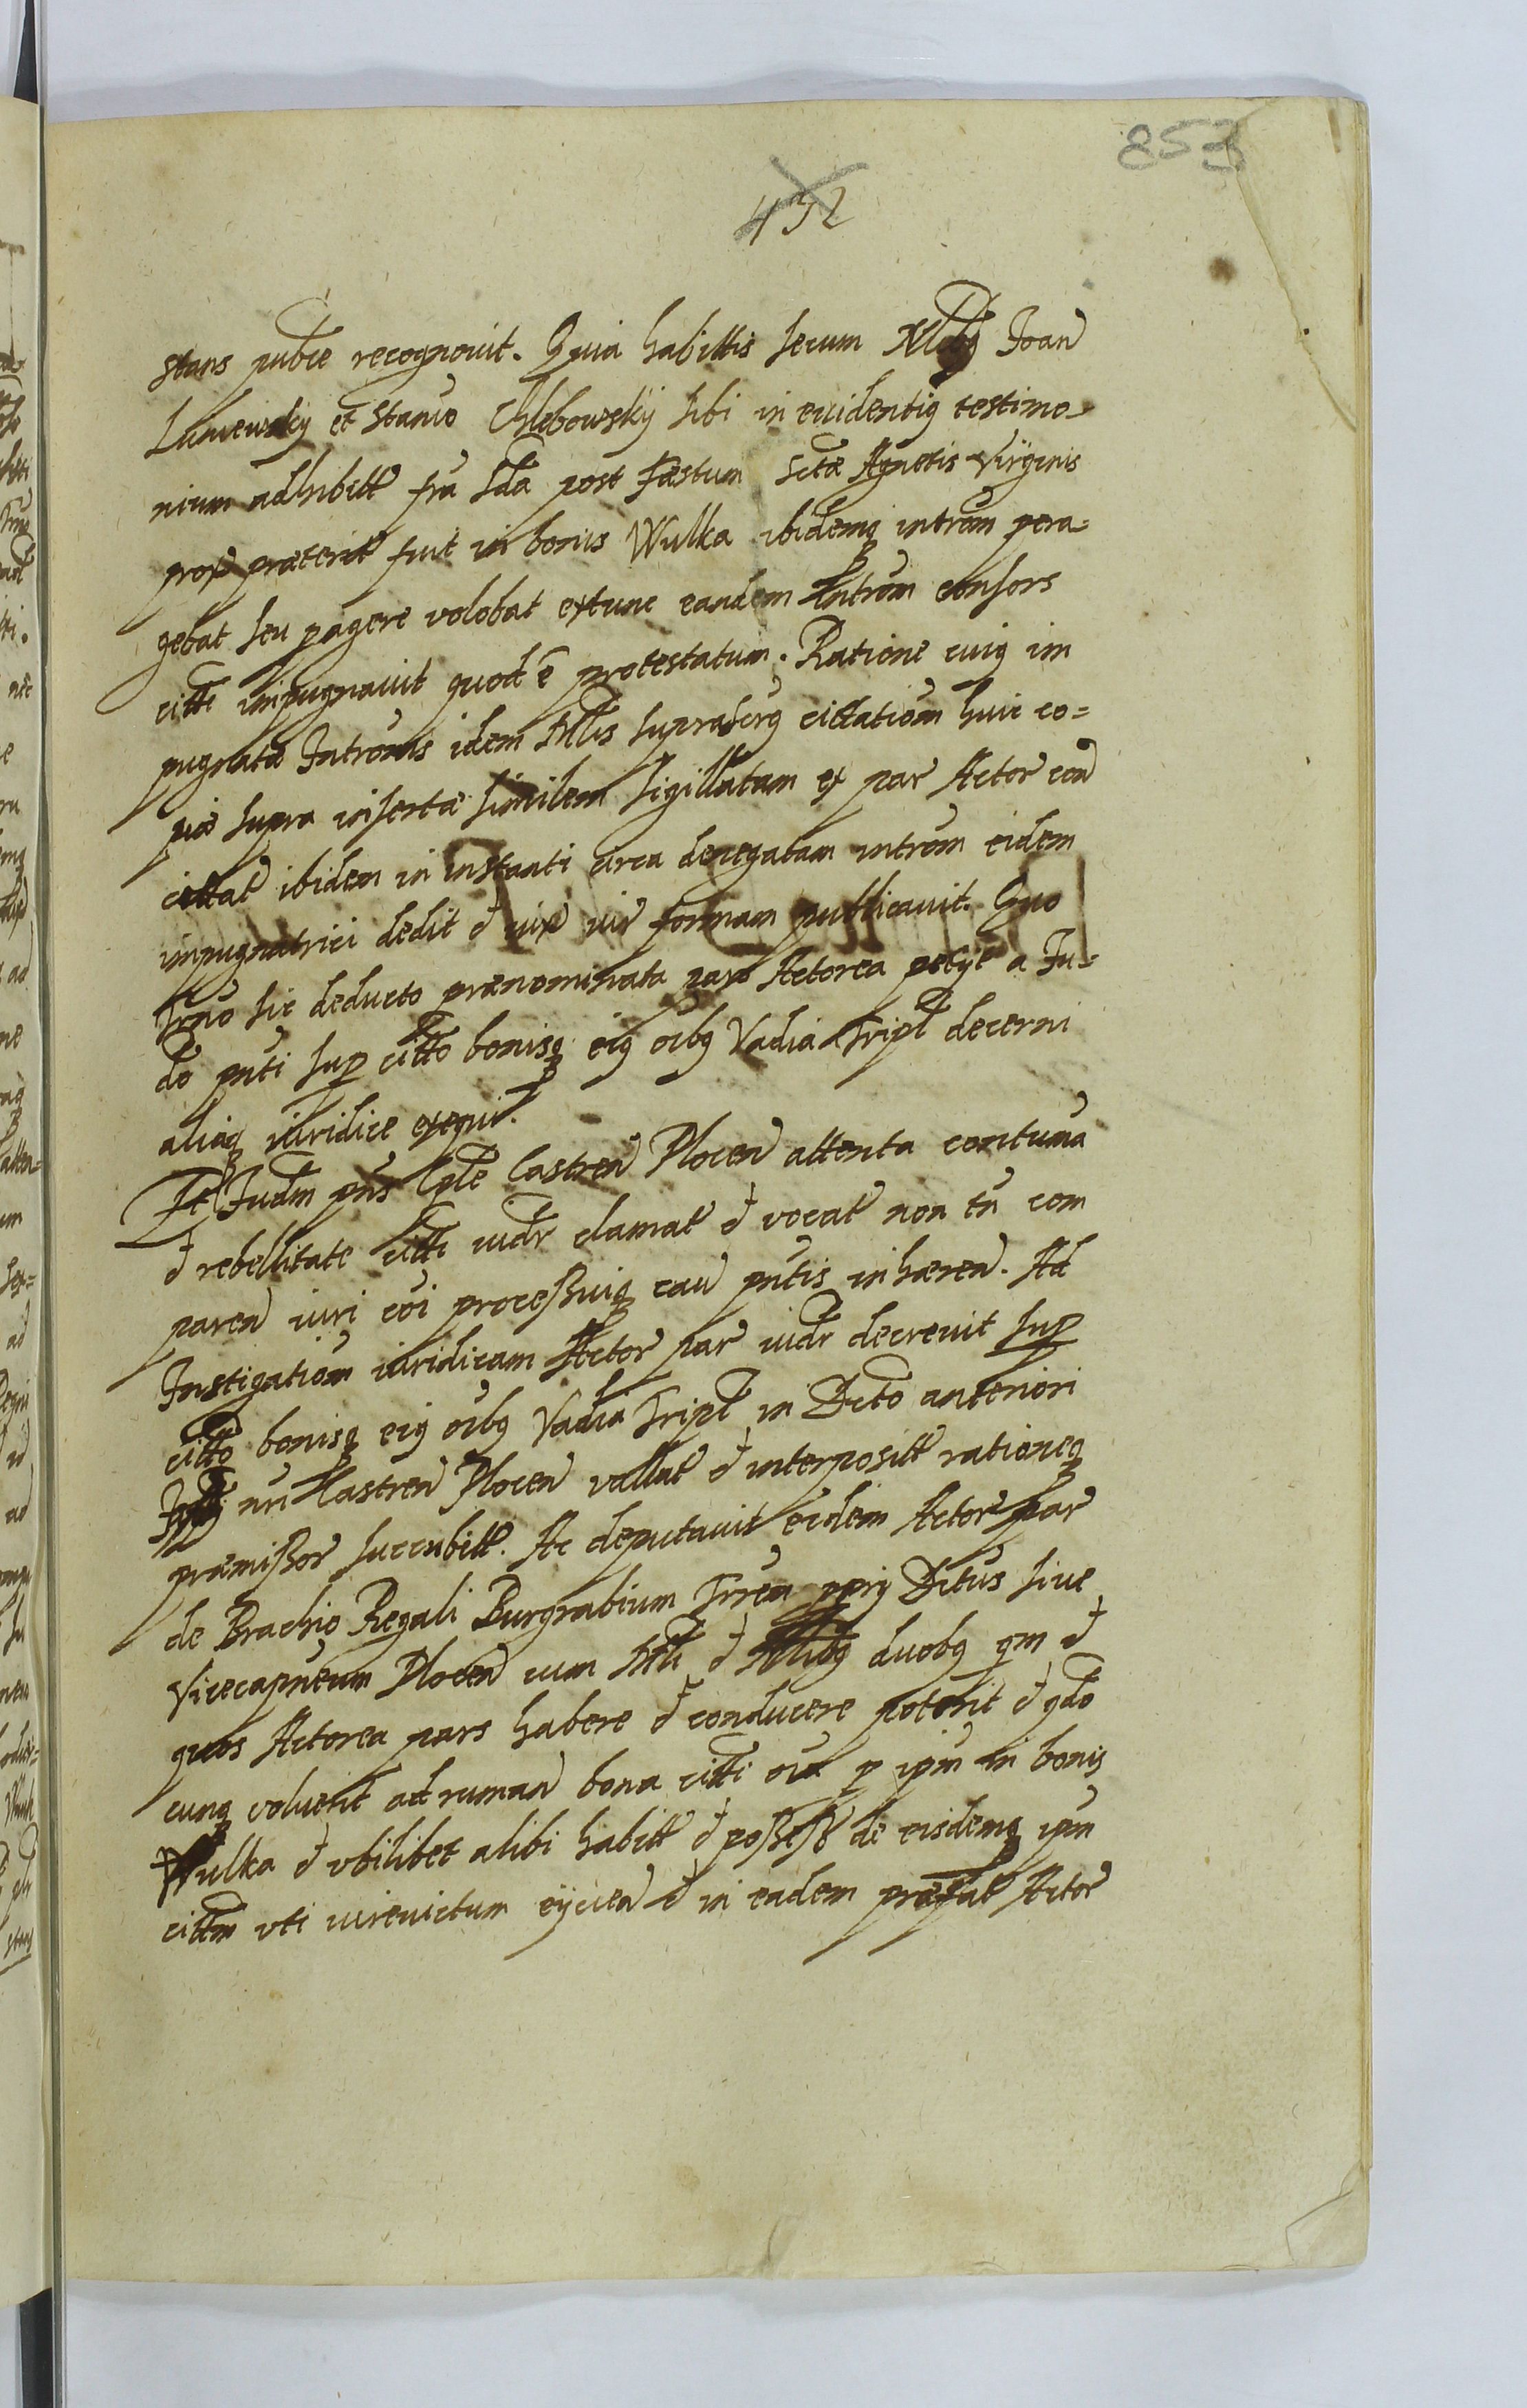 853
432
stans pubce recognovit. Quia habittis secum Nlibg Joan
et Stanio Chlebowskÿ sibi in evidentig testimo-
nium adhibitt fra Sda post Fæstum Sctæ Agnetis Virginis
prox præterit fuit in bonis Wulka ibidemq intrōm pera=
gebat seu pagere volebat extunc eandem Intrōm consors
citti impugnavit quod ē protestatum. Ratione cuig im
pugnatæ Intronis idem Mlis suprascrg cittationm huic co=
piæ supra insertæ similem sigillatam ex par Actor con
cittat ibidem in instanti circa denegatam intrōm eidem
impugnatrici dedit et iux iur formam publicavit. Quo
Trno sic deducto prænominata pars Actorea petÿt a Ju=
do pnti sup citto bonisq eig oibg Vadia Tripl decerni
aliaq iuridice exequi.
Et Judm pns Cple Castren Plocen attenta contuma
et rebellitate citti iudr clamat et vocat non tn com
paren iuri coi processuiq cau pntis inhæren. Ad
Instigationm iuridicam Actor par iudr decrevit sup
citto bonisq eig oibg Vadia Tripl in Dcto anteriori
nri Castren Plocen vallat et interposit rationeq
præmissor succubitt. Ac deputavit eidem Actor par
de Brachio Regali Burgrabium Trren ppriÿ Dctus sive
Vicecapneum Plocen cum Mli et Nlibg duobg qm et
quos Actorea pars habere et conducere poterit et qdo
cunq voluerit ad ruman bona citti oia p ipm in bonis
Wulka et ubilibet alibi habitt et possess de eisdemq ipm
cittm uti iurevictum eÿcien et in eadem præfat Actor